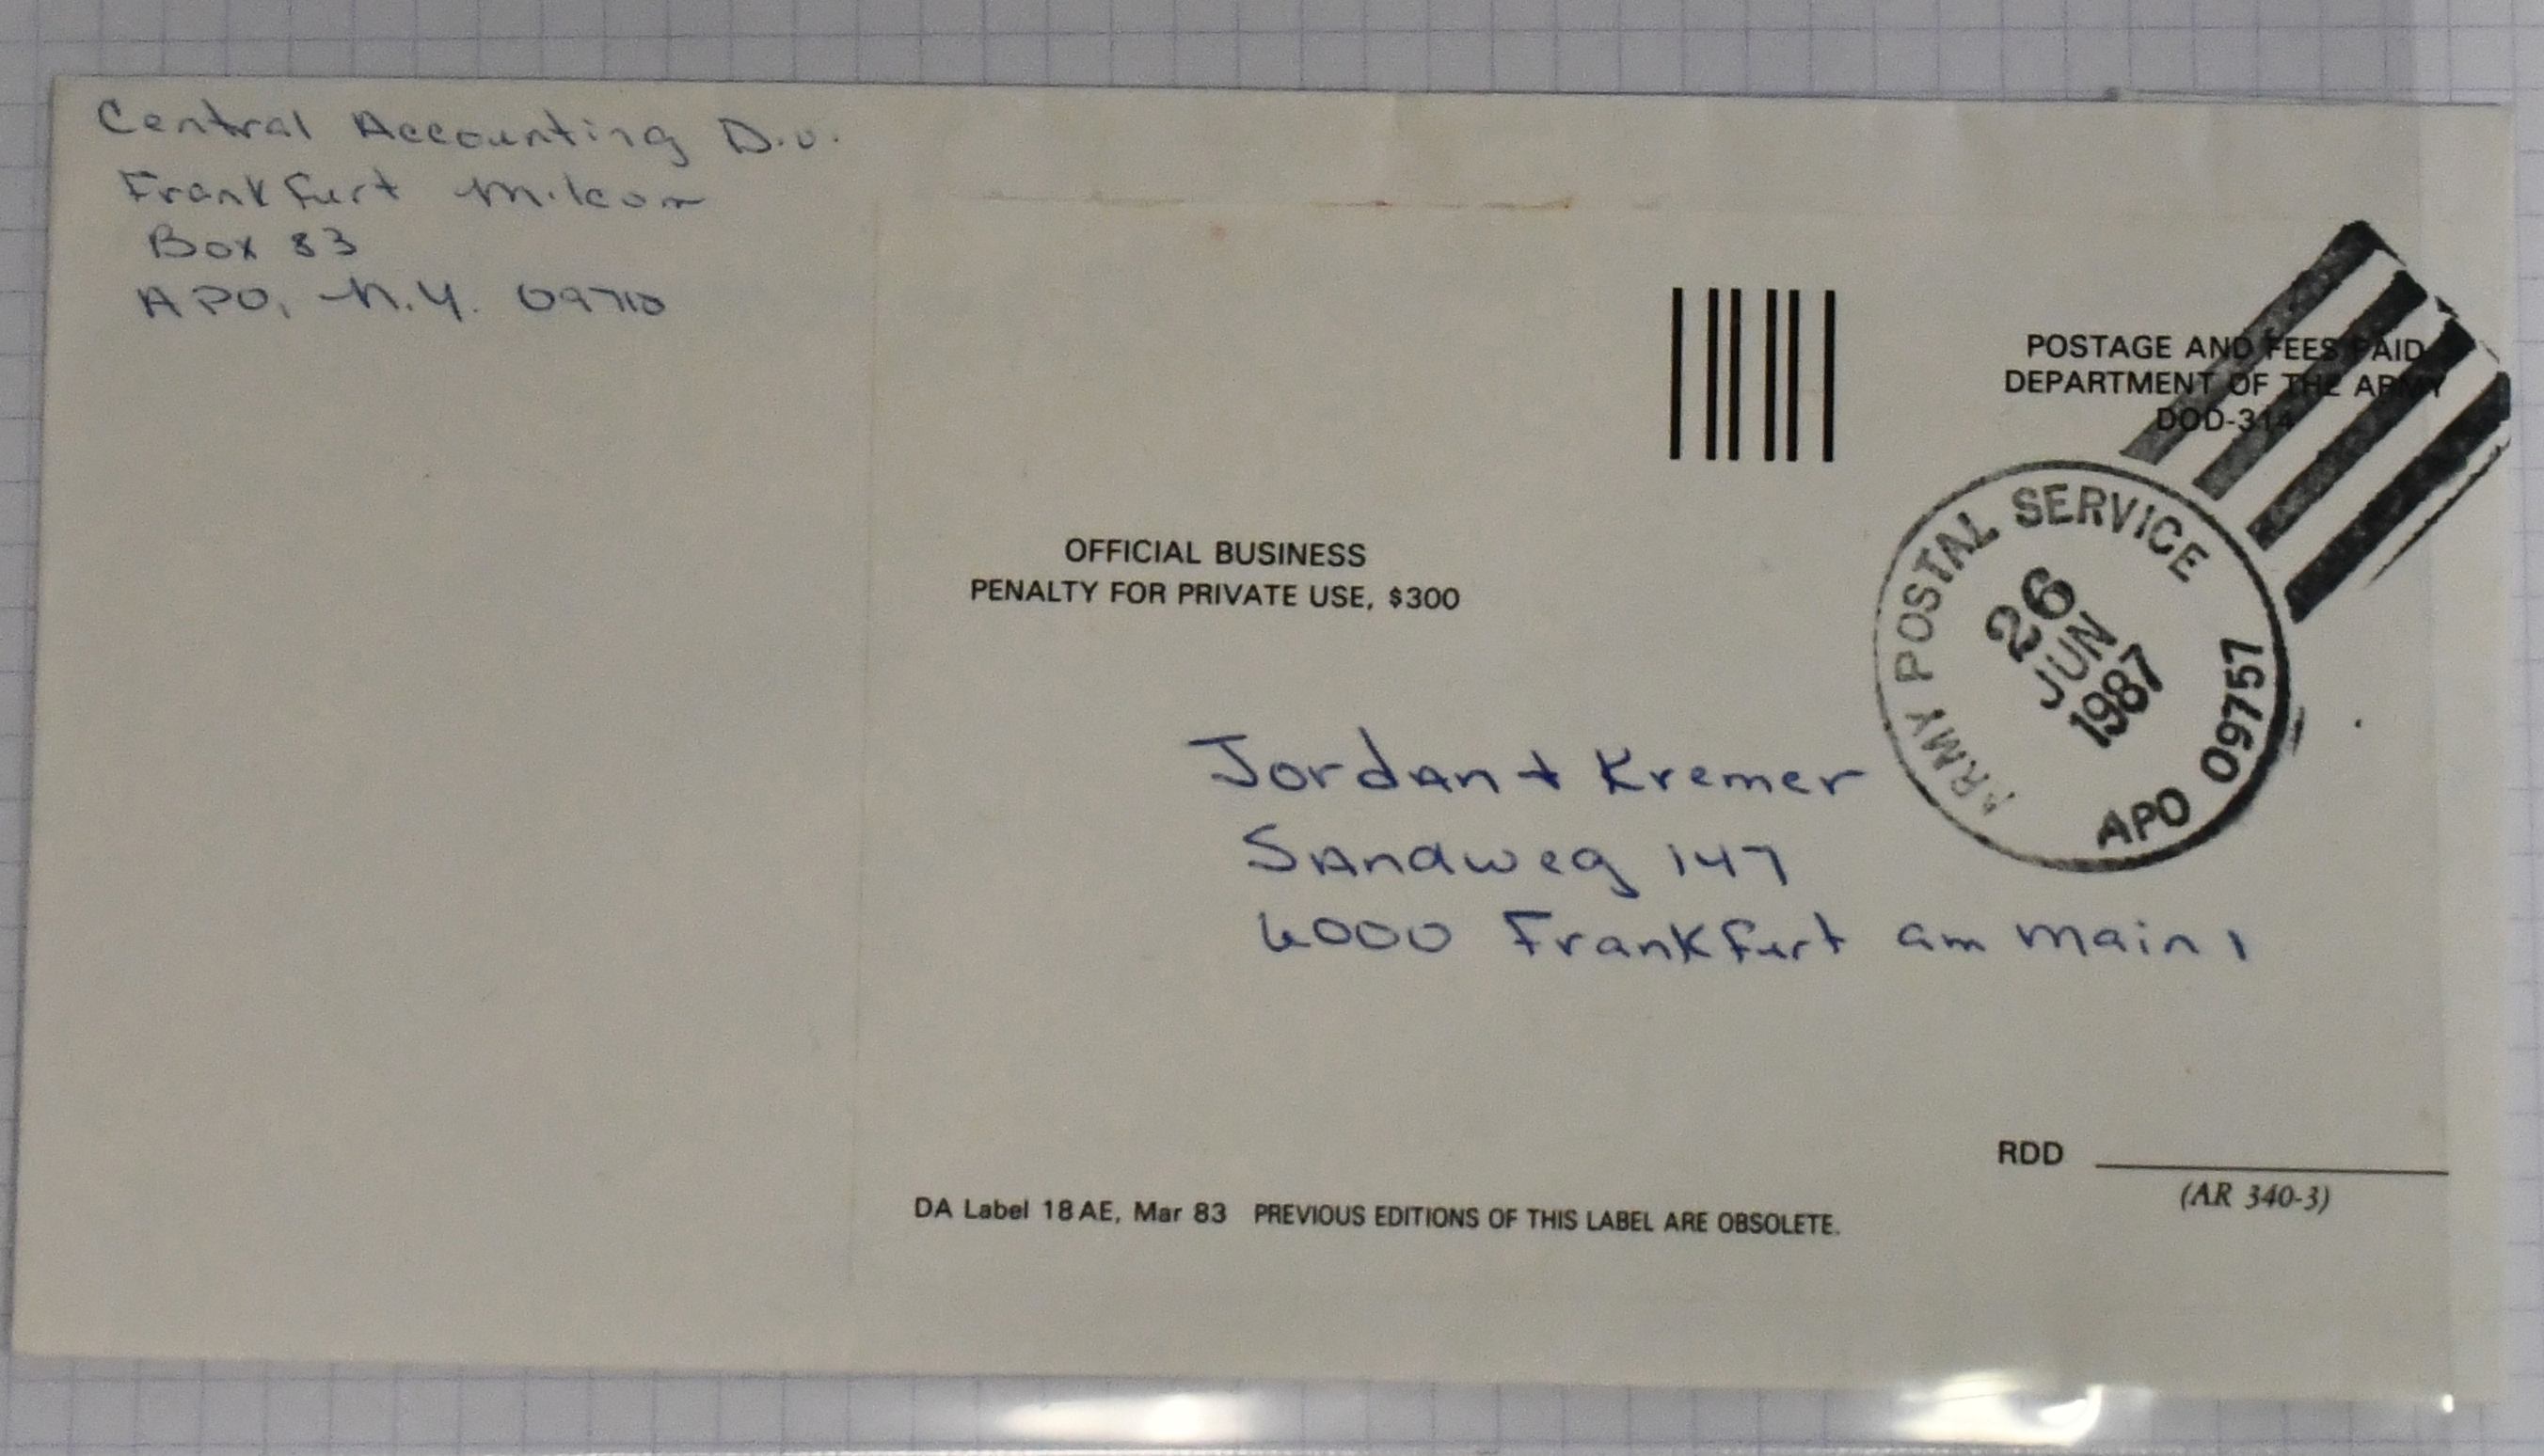 Central Accounting Div.
Frankfurt Milcom
Box 83
APO, N.Y. 09710
POSTAGE AND FEES PAID
DEPARTMENT OF THE ARMY
DOD-314
OFFICIAL BUSINESS
PENALTY FOR PRIVATE USE, $300
ARMY POSTAL SERVICE
26
JUN
1987
APO 09757
Jordan + Kremer
Sandweg 147
6000 Frankfurt am Main 1
RDD
(AR 340-3)
DA Label 18 AE, Mar 83 PREVIOUS EDITIONS OF THIS LABEL ARE OBSOLETE.